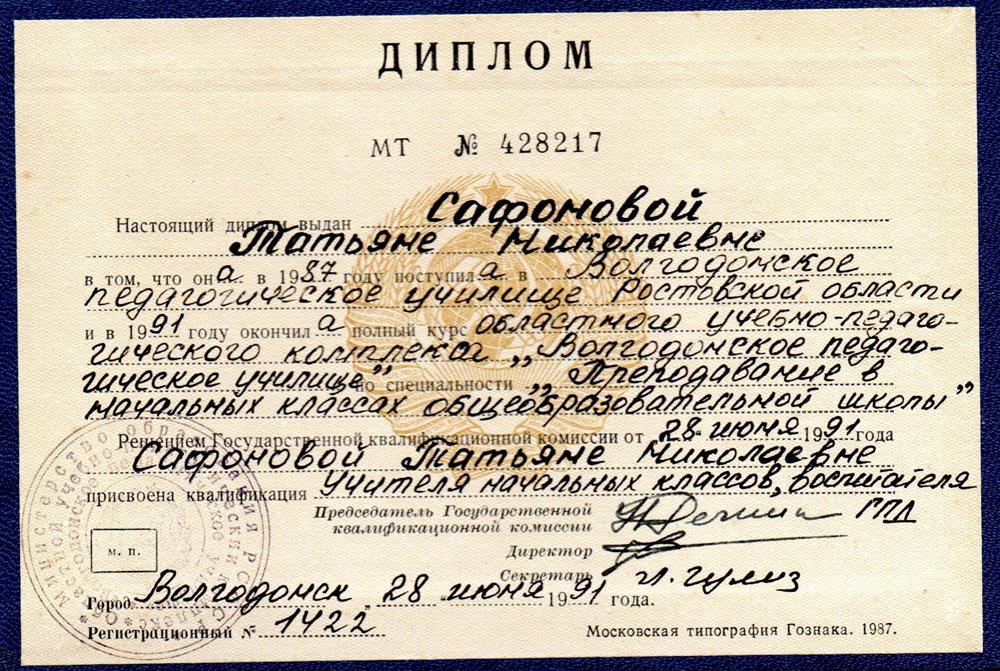 ДИПЛОМ
МТ № 428217
Настоящий диплом выдан Сафоновой
Татьяне Николаевне
в том, что она в 1987 году поступила в Волгодонское
педагогическое училище Ростовской области
и в 1991 году окончила полный курс областного учебно-педаго-
гического комплекса „Волгодонское педаго-
гическое училище” по специальности „Преподавание в
начальных классах общеобразовательной школы”
Решением Государственной квалификационной комиссии от 28 июня 1991 года
Сафоновой Татьяне Николаевне
присвоена квалификация Учителя начальных классов, воспитателя
Председатель Государственной
квалификационной комиссии ГПД
Директор
Секретарь
м. п.
Город Волгодонск „ 28 июня 1991 года.
Регистрационный № 1422
Московская типография Гознака. 1987.